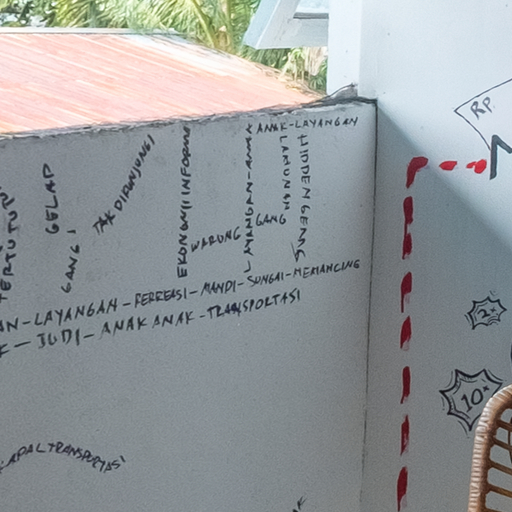 ANAK-LAYANGAN
RP.
TERTUTUP
GELAP
GANG
TAK DIKUNJUNGI
EKONOMI INFORMAL
WARUNG
LAYANGAN-ANAK
GANG
LAMUNAN
HIDDEN GEMS
AN-LAYANGAN-REKREASI-MANDI-SUNGAI-MEMANCING
K-JUDI-ANAK ANAK-TRANSPORTASI
2x
10x
KAPAL TRANSPORTASI